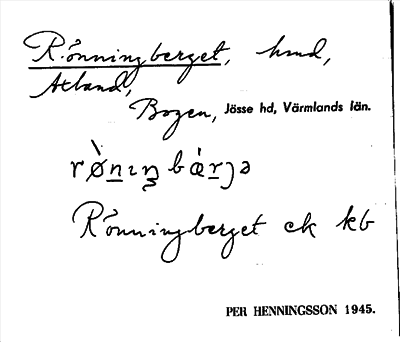 Rönningberget, hmd,
Atland,
Bogen, Jösse hd, Värmlands län.
Rönningberget ek kb
PER HENNINGSSON 1945.